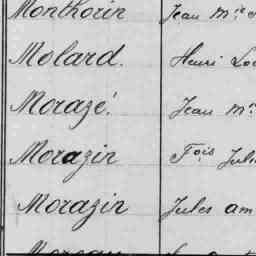 Monthorin Jean M
Molard. Henri Lo
Morazé. Jean M
Morazin Fois Jul
Morazin Jules am